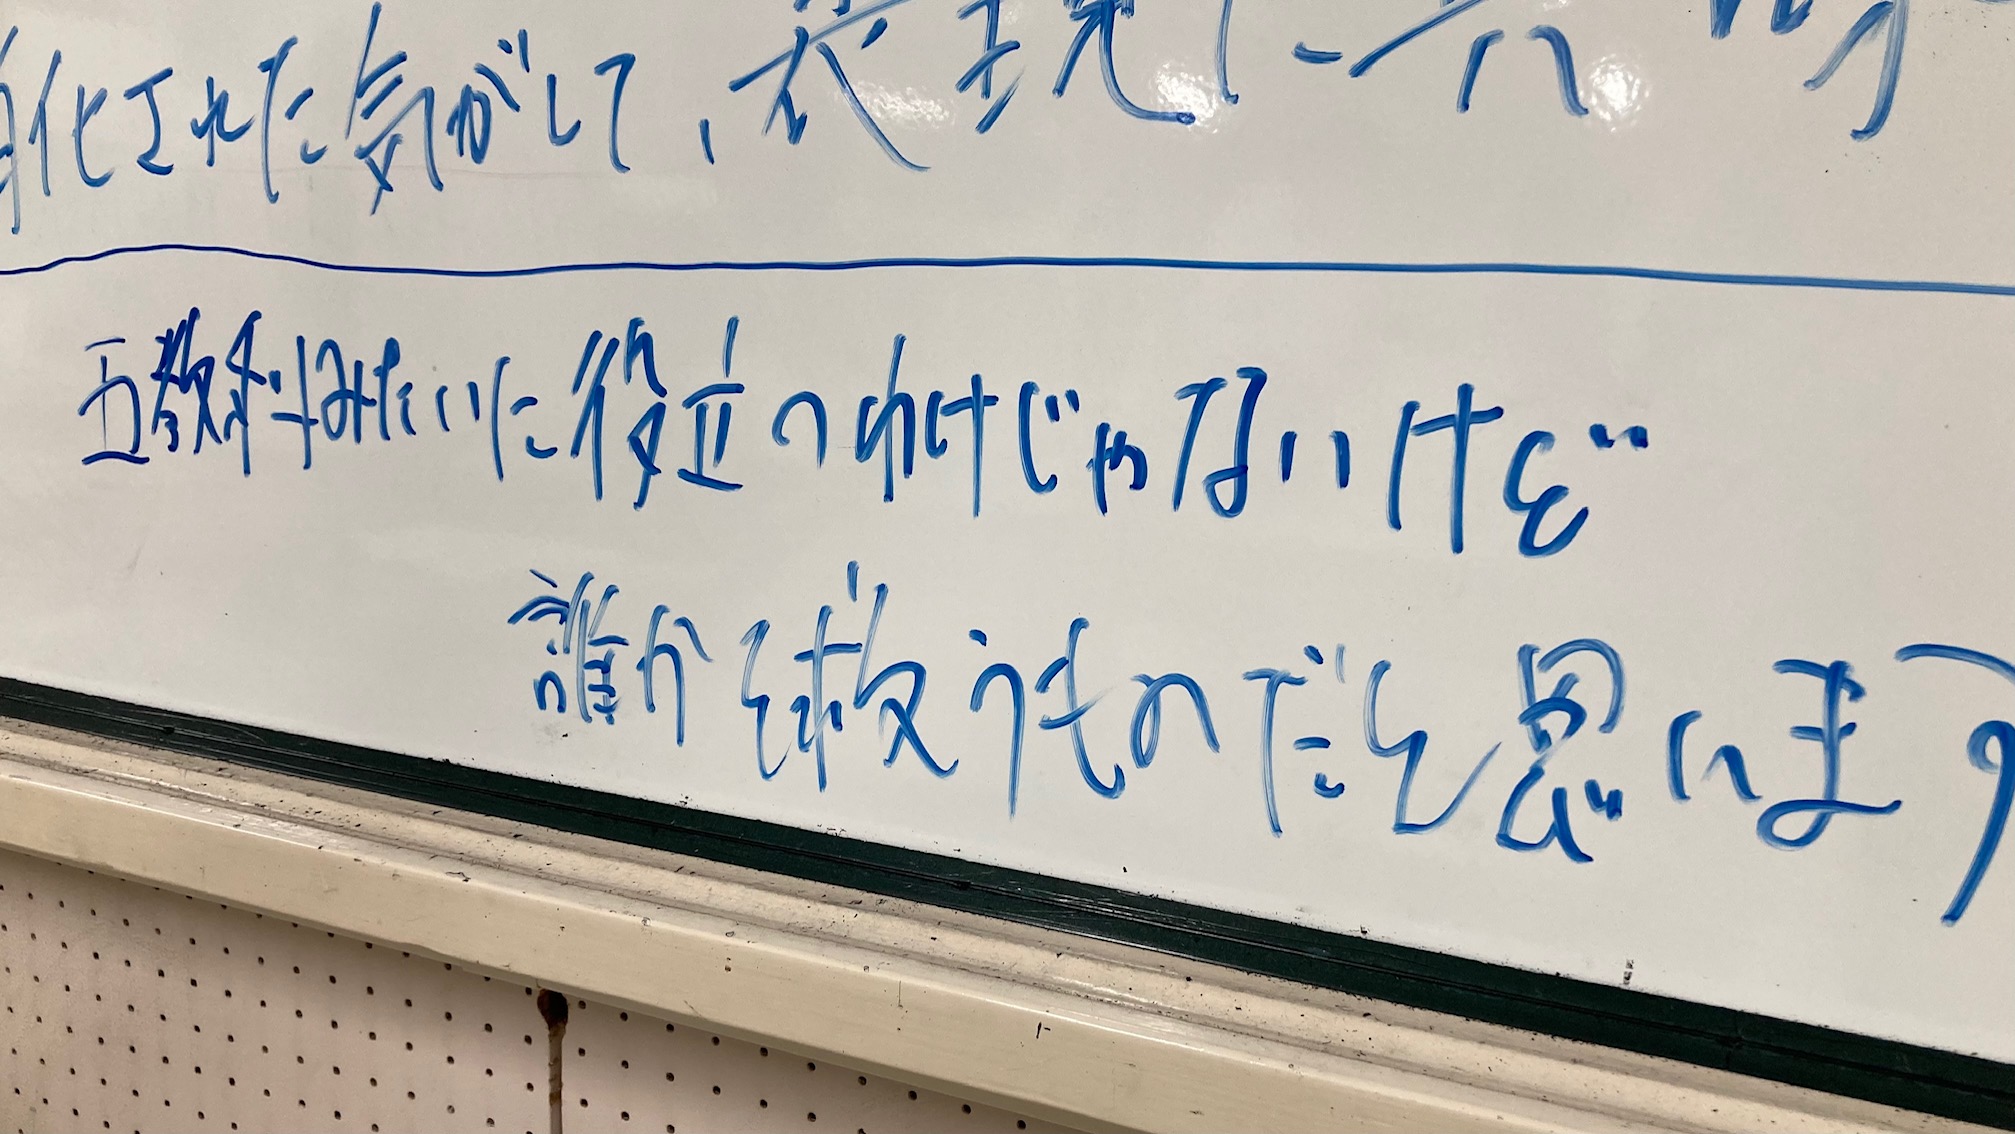 化された気がして、表現した
五教科みたいに役立つわけじゃないけど
誰かを救うものだと思います